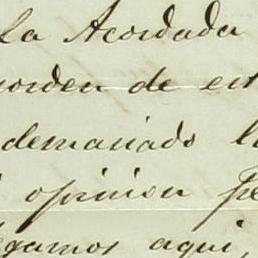 La Acordada
orden de est
demasiado l
opinion pe
gamos aqui,